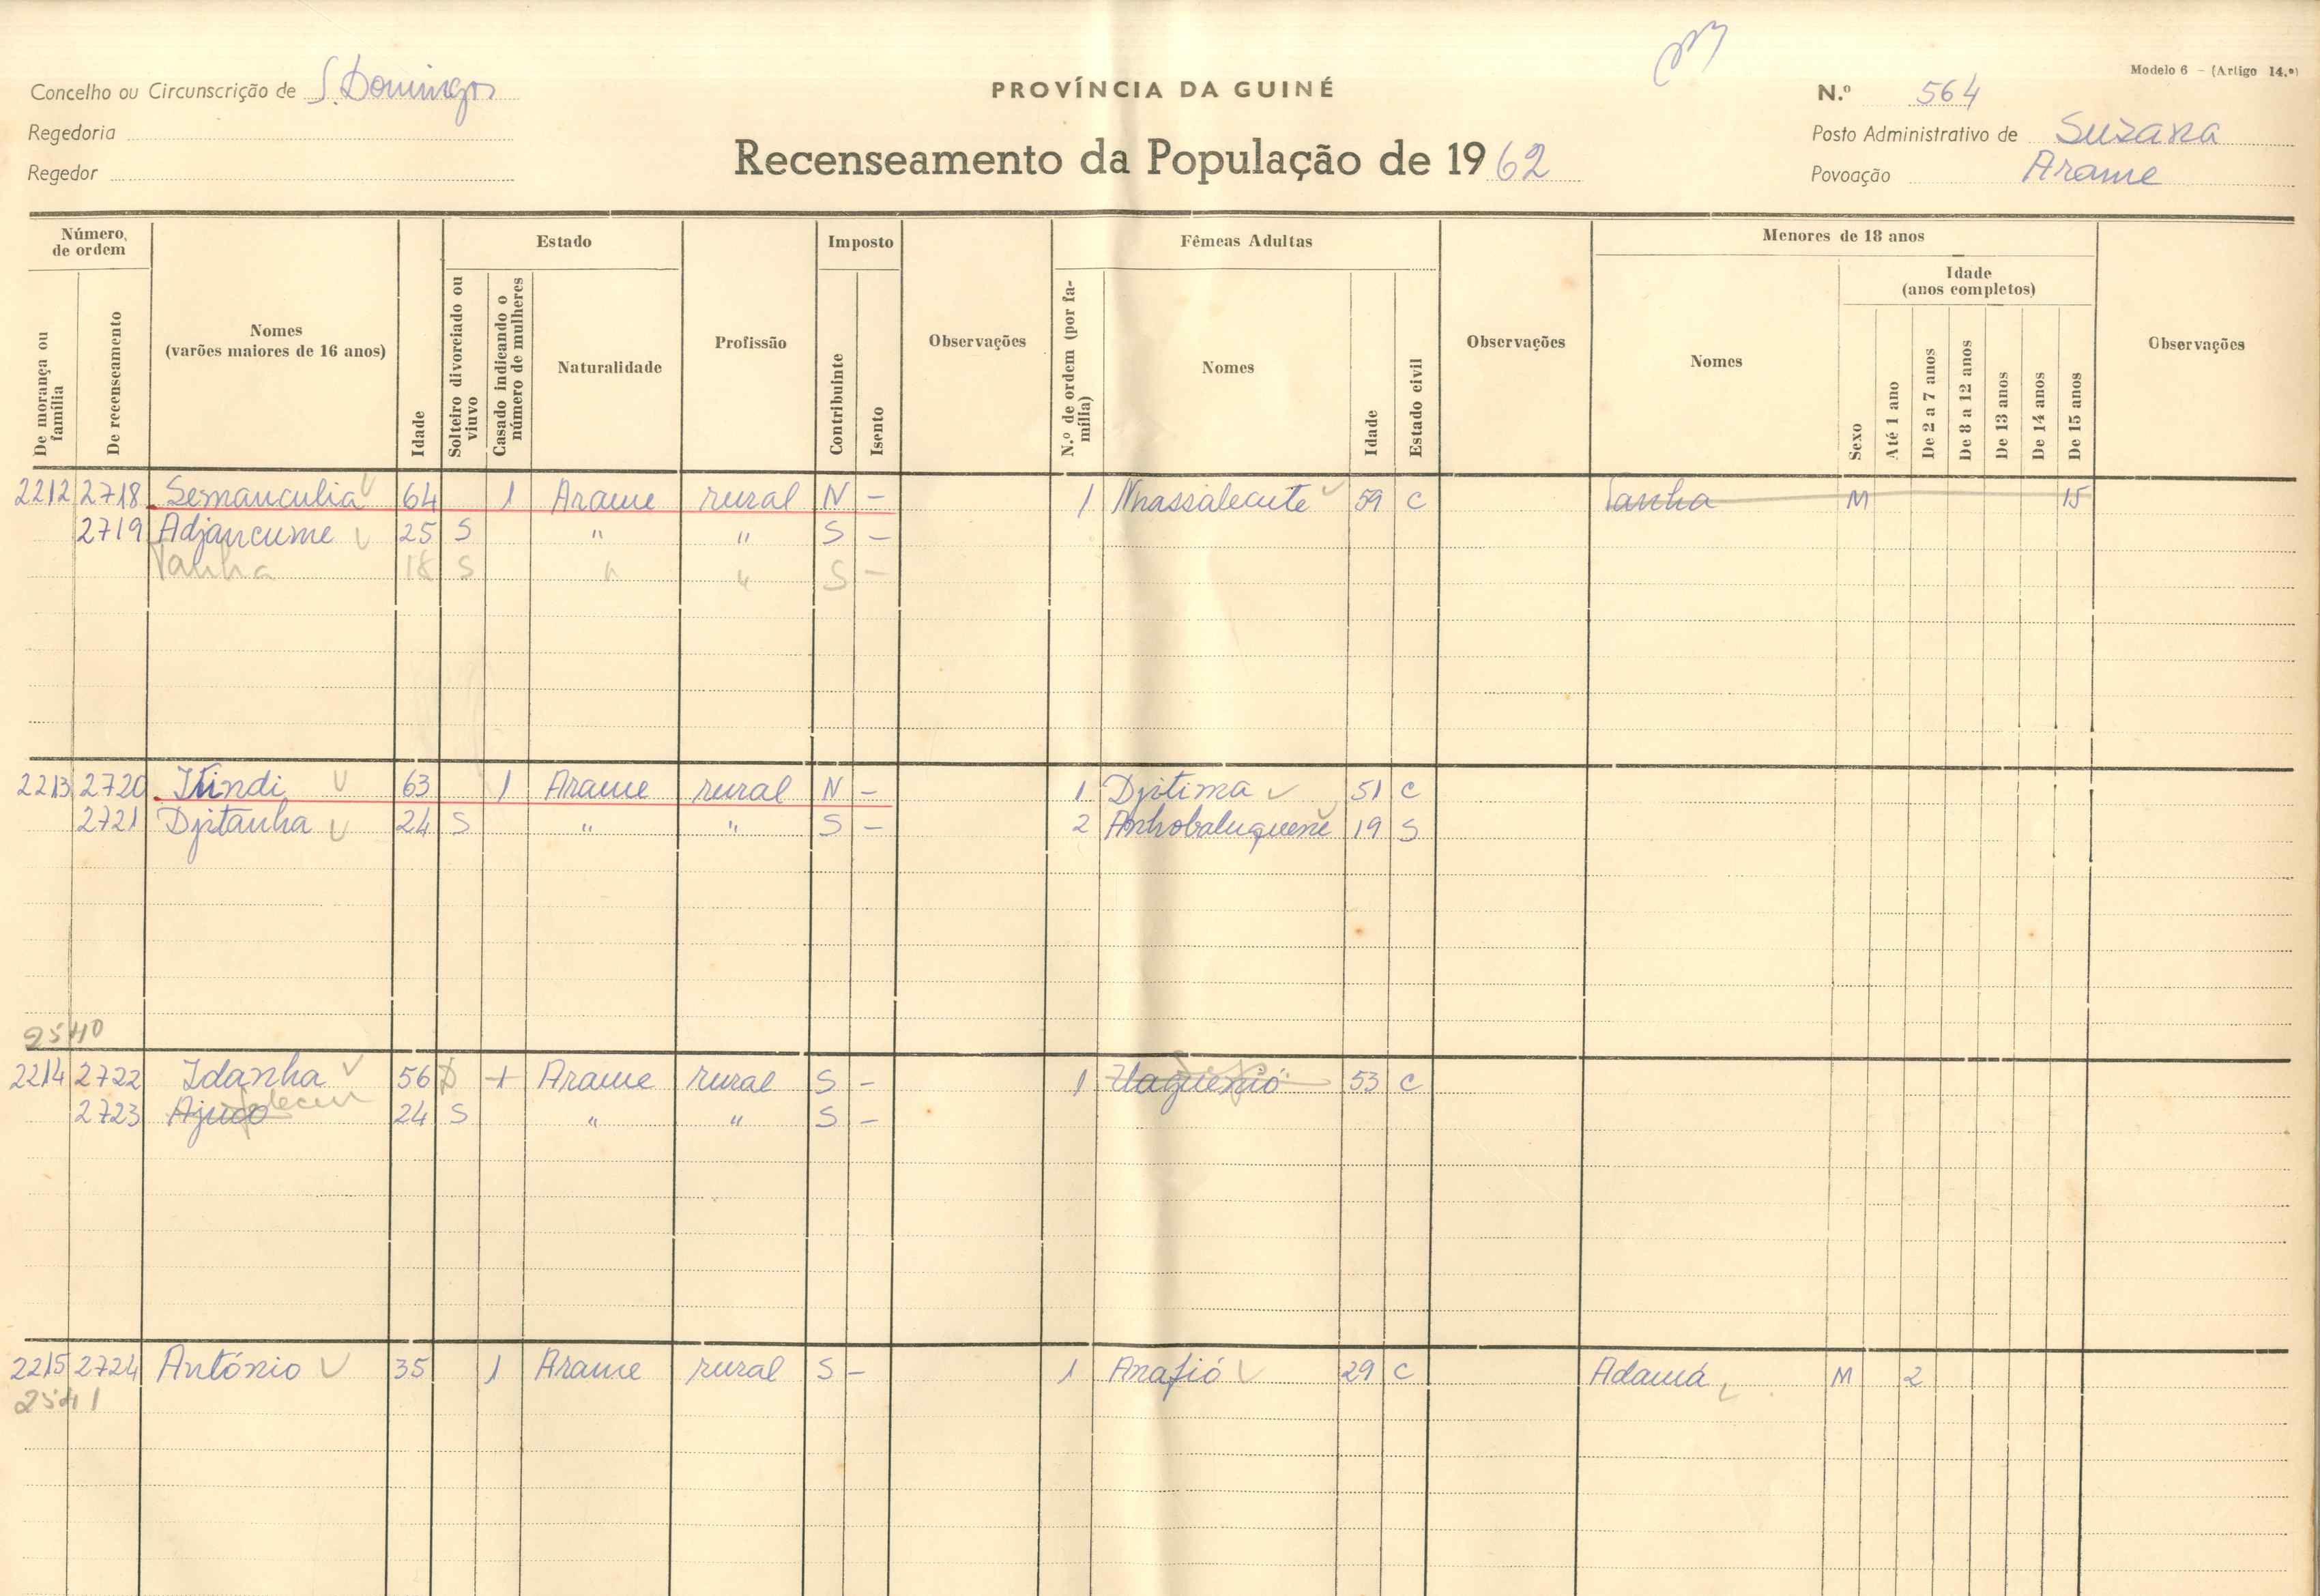 Modelo 6 - (Artigo 14.º)
Concelho ou Circunscrição de S. Domingos
PROVÍNCIA DA GUINÉ
N.º 564
Regedoria
Recenseamento da População de 1962
Posto Administrativo de Suzana
Regedor
Povoação Arame
Número de ordem
Estado
Imposto
Fêmeas Adultas
Menores de 18 anos
Idade (anos completos)
De morança ou família
De recenseamento
Nomes (varões maiores de 16 anos)
Idade
Solteiro divorciado ou viuvo
Casado indicando o número de mulheres
Naturalidade
Profissão
Contribuinte
Isento
Observações
N.º de ordem (por família)
Nomes
Idade
Estado civil
Observações
Nomes
Sexo
Até 1 ano
De 2 a 7 anos
De 8 a 12 anos
De 13 anos
De 14 anos
De 15 anos
Observações
2212 2718 Semanculia 64 1 Arame rural N - 1 Nhassalecute 59 C Tanha M 15
2719 Adjancume 25 S " " S -
Tanha 18 S " " S -
2213 2720 63 1 Arame rural N - 1 Djitima 51 C
2721 Djitanha 24 S " " S - 2 19 S
2540
2214 2722 Idanha 56 D 1 Arame rural S - 1 53 C
2723 Ajuco 24 S " " S -
2215 2724 António 35 1 Arame rural S - 1 Anafió 29 C Adamá M 2
2541